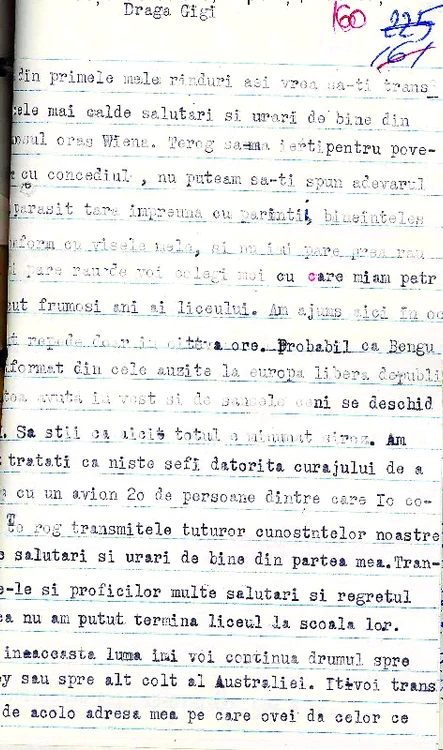 Draga Gigi
160
225
161
din primele mele rinduri asi vrea sa-ti trans_
cele mai calde salutari si urari de bine din
oras Wiena. Terog sa-ma iertipentru pove-
cu concediul , nu puteam sa-ti spun adevarul
parasit tara impreuna cu parintii, bineinteles
cu visele mele, si nu imi pare prea rau
pare rau de voi colegi mei cu care miam petr
frumosi ani ai liceului. Am ajuns aici in oc
repede doar in citeva ore. Probabil ca Bengu
format din cele auzite la europa libera depubli
avuta in vest si de sansele ceni se deschid
Sa stii ca aici totul e minunat Am
tratati ca niste sefi datorita curajului de a
cu un avion 2o de persoane dintre care Io co-
Te rog transmitele tuturor cunostntelor noastre
salutari si urari de bine din partea mea.Tran-
e-le si proficilor multe salutari si regretul
ca nu am putut termina liceul la scoala lor.
inaaceasta luma imi voi continua drumul spre
ey sau spre alt colt al Australiei. Itivoi trans
de acolo adresa mea pe care ovei da celor ce